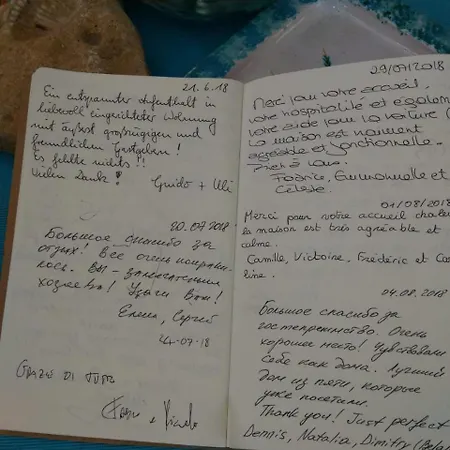 21.6.18
Ein entspannter Aufenthalt in
liebevoll eingerichteter Wohnung
mit äußerst großzügigen und
freundlichen Gastgebern!
Es fehlte nichts!!
Vielen Dank! Guido + Ulli
20.07.2018
Большое спасибо за
отдых! Всё очень понрави-
лось. Вы - замечательные
хозяева! Удачи Вам!
Елена, Сергей
24-07-18
GRAZIE DI TUTTO
29/07/2018
Merci pour votre accueil,
votre hospitalité et également
votre aide pour la voiture
La maison est vraiment
agréable et fonctionnelle.
Emmanuelle et
Céleste.
01/08/2018
Merci pour votre accueil chaleu
la maison est très agréable et
calme.
Camille, Victoire, Frédéric et Ca
line.
04.08.2018
Большое спасибо за
гостеприимство. Очень
хорошее место! Чувствовали
себя как дома. Лучший
дом из пяти, которые
уже посетили.
Thank you! Just perfect
Dennis, Natalia, Dimitry (Bela